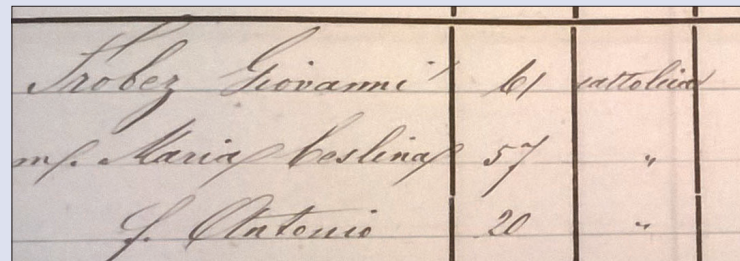 Trobez Giovanni 61 cattolica
m/. Maria Ceslina 57 "
f. Antonio 20 "